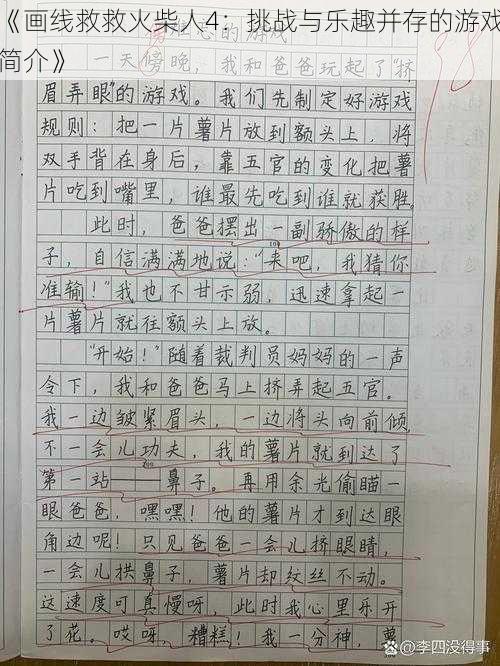 《画线救救火柴人4：挑战与乐趣并存的游戏
简介》
的游戏
98
一天傍晚，我和爸爸玩起了“挤
眉弄眼”的游戏。我们先制定好游戏
规则：把一片薯片放到额头上，将
双手背在身后，靠五官的变化把薯
片吃到嘴里，谁最先吃到谁就获胜。
此时，爸爸摆出一副骄傲的样
100
子，自信满满地说：“来吧，我猜你
准输！”我也不甘示弱，迅速拿起一
片薯片就往额头上放。
“开始！”随着裁判员妈妈的一声
令下，我和爸爸马上挤弄起五官。
我一边皱紧眉头，一边将头向前倾，
不一会儿功夫，我的薯片就到达了
200
第一站——鼻子。再用余光偷瞄一
眼爸爸，嘿嘿！他的薯片才到达眼
角边呢！只见爸爸一会儿挤眼睛，
一会儿拱鼻子，薯片却纹丝不动。
这速度可真慢呀，此时我心里乐开
了花。哎呀，糟糕！我一分神，薯
@李四没得事